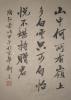 山中何所有嶺上
多白雲只可自怡
悅不堪持贈君